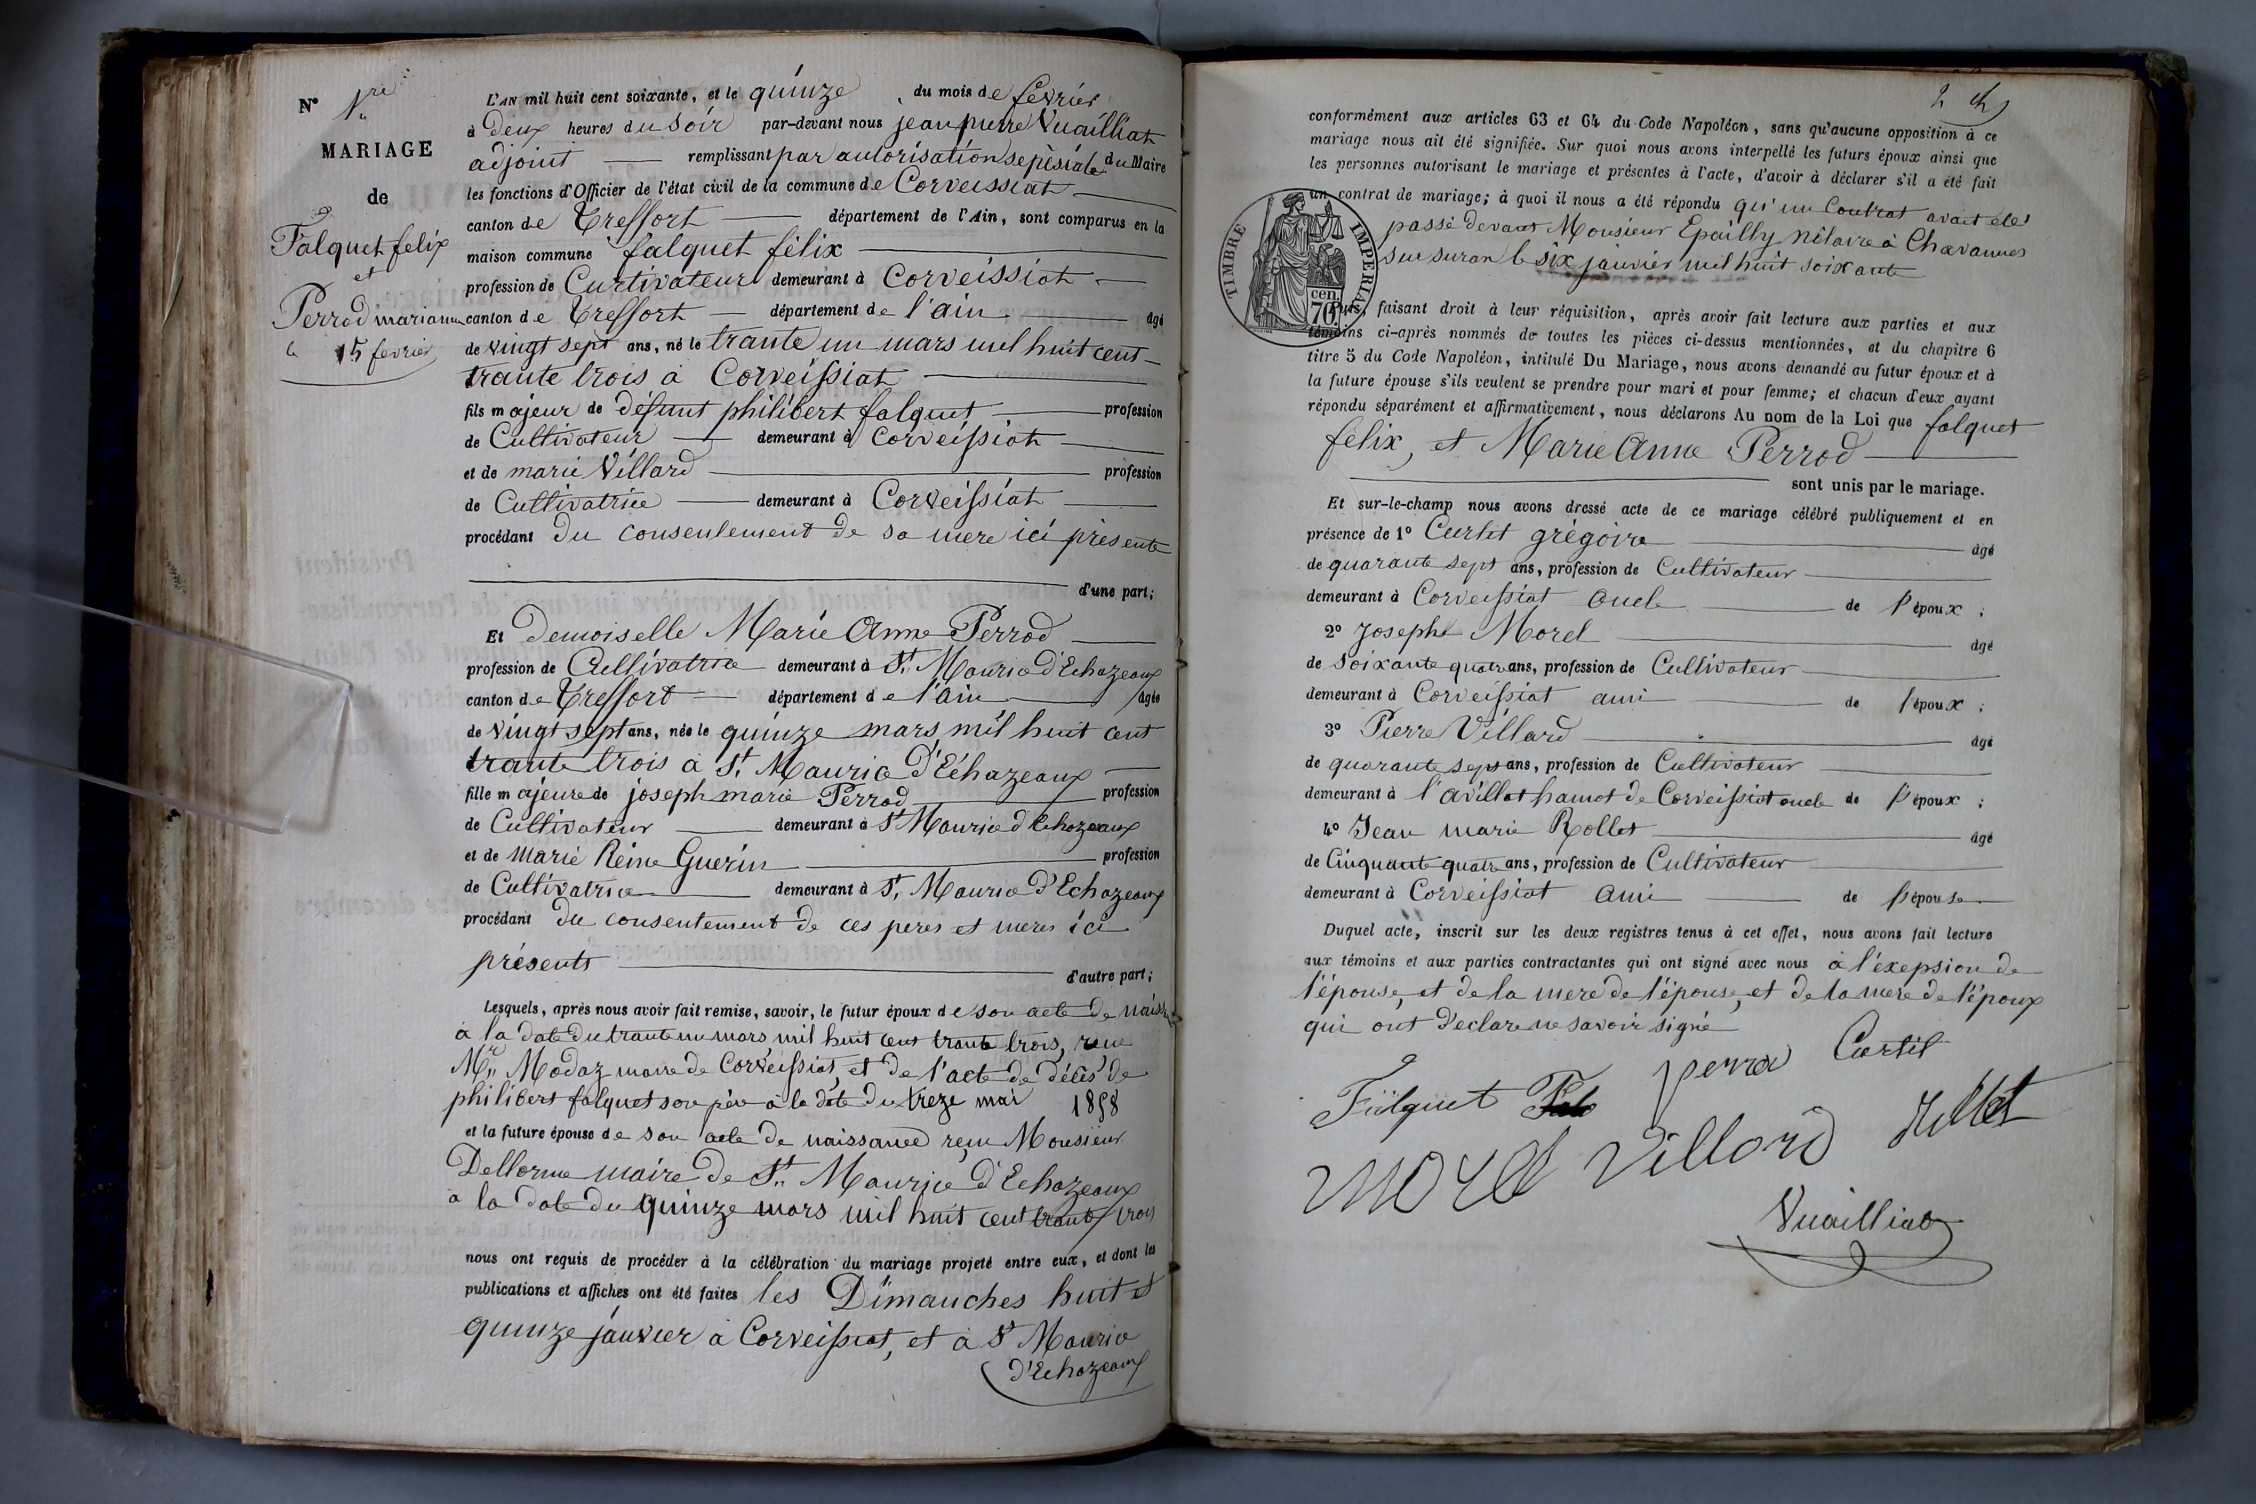 N° 1re
MARIAGE
de
Falquet felix
et
Perrod marianne
le 15 fevrier
L'AN mil huit cent soixante, et le quinze du mois de fevrier
à deux heures du soir par-devant nous jean pierre Vuailliat
adjoint remplissant par autorisation sepésiale du Maire
les fonctions d'Officier de l'état civil de la commune de Corveissiat
canton de Treffort département de l'Ain, sont comparus en la
maison commune falquet félix
profession de Curtivateur demeurant à Corveissiat
canton de Treffort département de l'ain âgé
de vingt sept ans, né le trante un mars mil huit cent
trante trois à Corveissiat
fils majeur de défunt philibert falquet profession
de Cultivateur demeurant à Corveissiat
et de marie Villard profession
de Cultivatrice demeurant à Corveissiat
procédant du consentement de sa mere ici présente
d'une part;
Et Demoiselle Marie Anne Perrod
profession de Cultivatrice demeurant à St. Maurice d'Echazeaux
canton de Treffort département de l'ain âgée
de vingt sept ans, née le quinze mars mil huit cent
trante trois à St. Maurice d'Echazeaux
fille majeure de joseph marie Perrod profession
de Cultivateur demeurant à St Maurice d'Echazeaux
et de Marie Reine Guerin profession
de Cultivatrice demeurant à St. Maurice d'Echazeaux
procédant du consentement de ces peres et meres ici
présents
d'autre part;
Lesquels, après nous avoir fait remise, savoir, le futur époux de son acte de naiss
à la date du trante un mars mil huit cent trante trois, reçu
Mr. Modaz maire de Corveissiat, et de l'acte de décès de
philibert falquet son père à la date du treze mai 1858
et la future épouse de son acte de naissance reçu Monsieur
Dellorme maire de St. Maurice d'Echazeaux
à la date du quinze mars mil huit cent trante trois
nous ont requis de procéder à la célébration du mariage projeté entre eux, et dont les
publications et affiches ont été faites les Dimanches huit et
quinze janvier à Corveissiat, et à St Maurice
d'Echazeaux
2
conformément aux articles 63 et 64 du Code Napoléon, sans qu'aucune opposition à ce
mariage nous ait été signifiée. Sur quoi nous avons interpellé les futurs époux ainsi que
les personnes autorisant le mariage et présentes à l'acte, d'avoir à déclarer s'il a été fait
un contrat de mariage; à quoi il nous a été répondu qu'un Contrat avait été
passé devant Monsieur Epailly nôtaire à Chavannes
sur suran le six janvier mil huit soixante
TIMBRE IMPERIAL
70 cen.
Puis, faisant droit à leur réquisition, après avoir fait lecture aux parties et aux
témoins ci-après nommés de toutes les pièces ci-dessus mentionnées, et du chapitre 6
titre 5 du Code Napoléon, intitulé Du Mariage, nous avons demandé au futur époux et à
la future épouse s'ils veulent se prendre pour mari et pour femme; et chacun d'eux ayant
répondu séparément et affirmativement, nous déclarons Au nom de la Loi que falquet
félix, et Marie Anne Perrod
sont unis par le mariage.
Et sur-le-champ nous avons dressé acte de ce mariage célébré publiquement et en
présence de 1° Curtet grégoire âgé
de quarante sept ans, profession de Cultivateur
demeurant à Corveissiat oncle de l'époux;
2° Joseph Morel âgé
de soixante quatre ans, profession de Cultivateur
demeurant à Corveissiat ami de l'époux;
3° Pierre Villard âgé
de quarante sept ans, profession de Cultivateur
demeurant à l'avillat hamot de Corveissiat oncle de l'époux;
4° Jean marie Rollet âgé
de Cinquante quatre ans, profession de Cultivateur
demeurant à Corveissiat ami de l'épouse
Duquel acte, inscrit sur les deux registres tenus à cet effet, nous avons fait lecture
aux témoins et aux parties contractantes qui ont signé avec nous à l'éxepsion de
l'épouse, et de la mere de l'épouse, et de la mere de l'époux
qui ont déclaré ne savoir signé
Falquet perrod Curtet
morel villard
Vuailliat